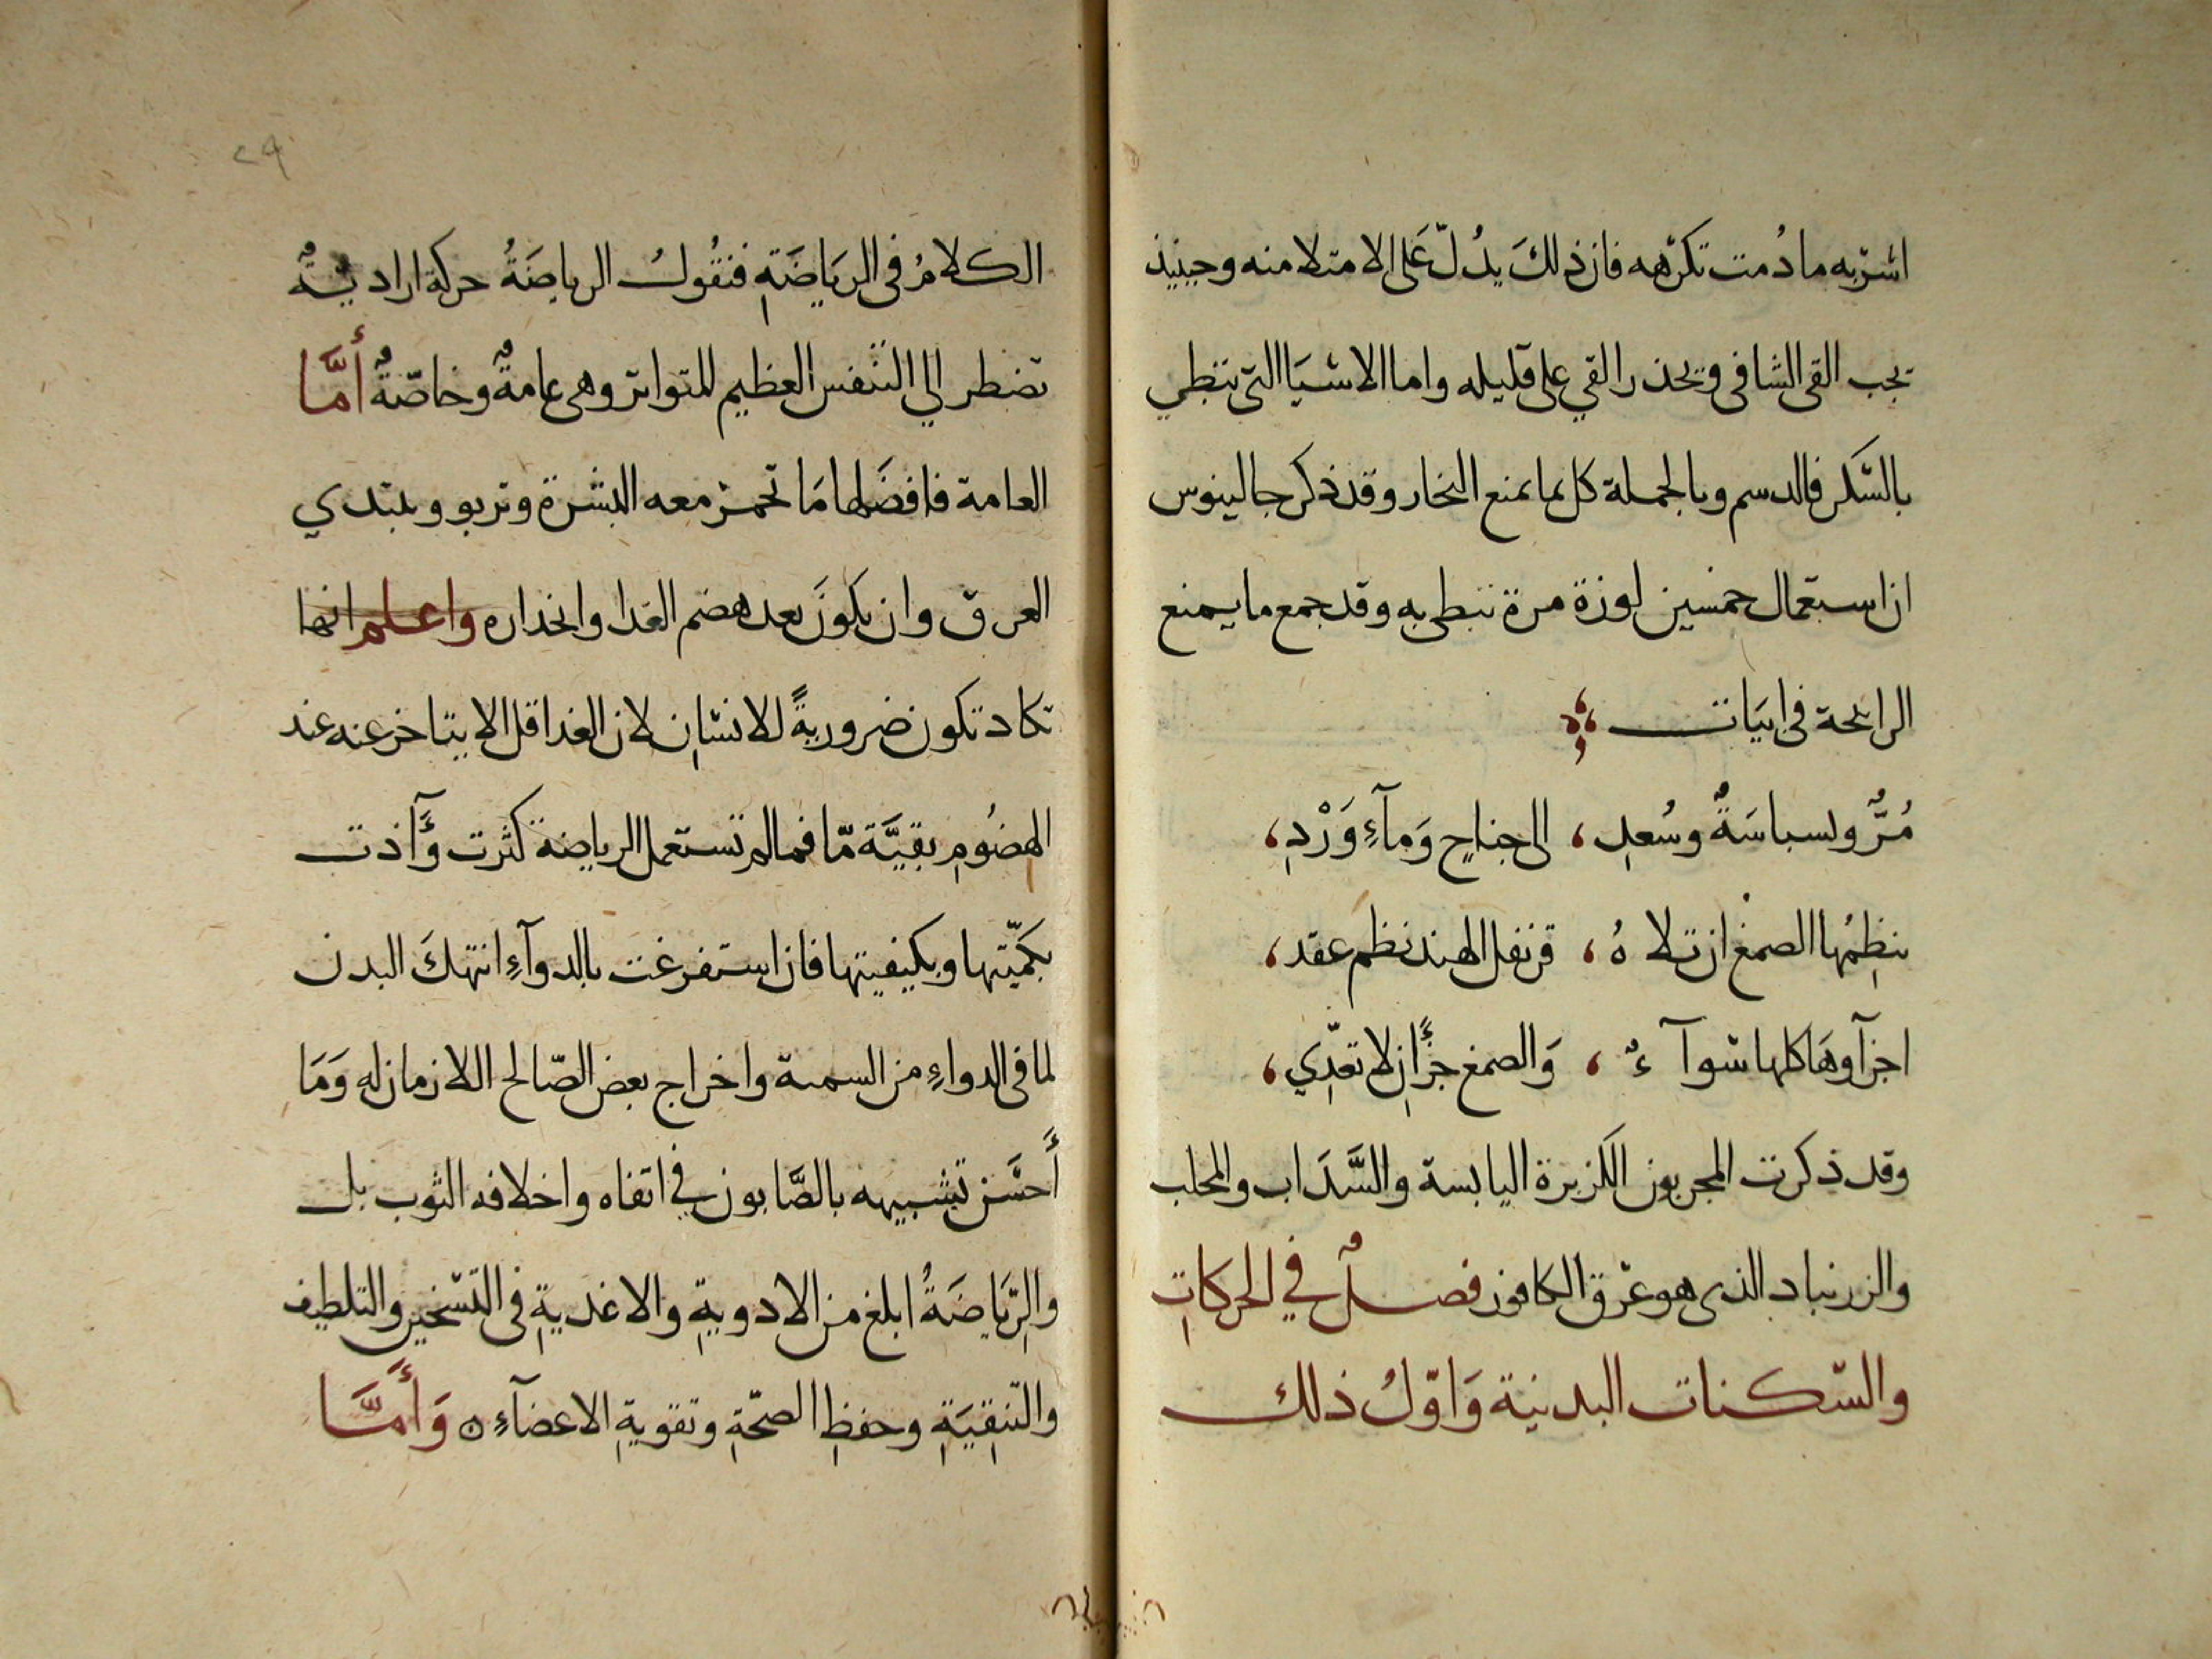 اشربه ما دُمت تكرهه فان ذلكَ يدُلّ عَلى الامتلا منه وحينيذ
يجب القى الشافى ويحذر القي على قليله واما الاشيَا التى تبطي
بالسّكر فالدسم وبالجملة كل ما يمنع البخار وقد ذكر جالينوس
ان استعمال خمسين لوزة مرة تبطى به وقد جمع ما يمنع
الرائحة فى ابيَات
مُرٌّ وبسباسَةٌ وسُعدِ ، الى جناحٍ وَمآءِ وَرْدِ ،
ينظِمُها الصمغ ان تلاهُ ، قرنفل الهند نظم عقد ،
اجزآوهَا كلها سوآءٌ ، وَالصمغ جزًا ان لا تعّدِي ،
وقد ذكرت المجربون الكزبرة اليابسة والسَّدَاب والمحلب
والزرنباد الذى هو عرق الكافور فصلٌ في الحركاتِ
والسّكنات البدنية وَاوّلُ ذلك
٢٩
الكلامُ فى الريَاضَةِ فنقُولُ الرياضَةُ حركة اراديةٌ
تضطر الي التنفس العظيم المتواتر وهى عامةٌ وخاصّةٌ أمَّا
العامة فافضَلها مَا تحمر معه البشرة وتربو ويبتدي
العرق وان يكونَ بعد هضم الغدا وانحداره واعلم انها
تكاد تكون ضروريةً للانسَانِ لان الغدا قل الا يتاخر عنه عند
الهضُومِ بقيَّة مّا فمالم تستعمل الرياضة كثرت وَآذت
بكميّتها وبكيفيتها فان استفرغت بالدوآءِ انتهكَ البدن
لما فى الدواءِ من السمية واخراج بعض الصّالح اللازمان له وَمَا
أَحسَّن تشبيهه بالصَّابون في انقاه واخلاقه الثوب بل
والرِّيَاضَةُ ابلغ من الادويةِ والاغذيةِ فى التسخين والتلطيف
والتنقِيَةِ وحفظِ الصحّةِ وتقويةِ الاعضآءِ ٥ وَأَمَّا